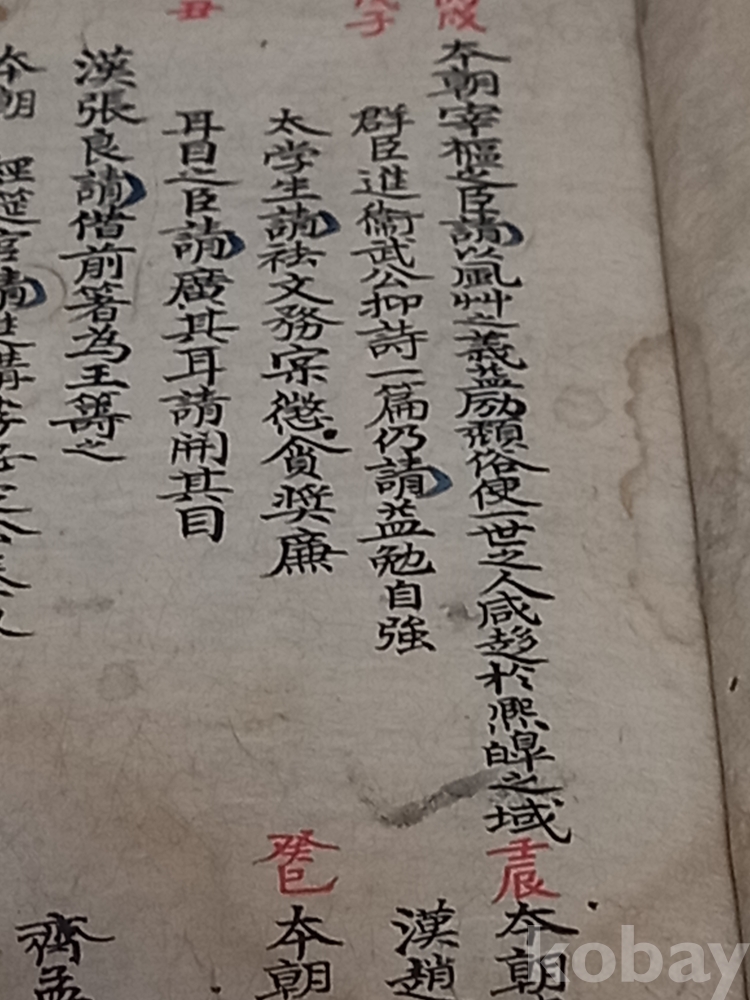 戌
本朝宰樞之臣請以風艸之義益励頹俗使一世之人咸趍於熈皥之域
壬辰
本朝
子
群臣進衞武公抑詩一篇仍請益勉自強
漢趙
太学生請祛文務宲懲貪奬廉
癸巳
本朝
丑
耳目之臣請廣其耳請開其目
漢張良請借前箸為王筭之
齊孟
本朝 經筵官請進講
kobay